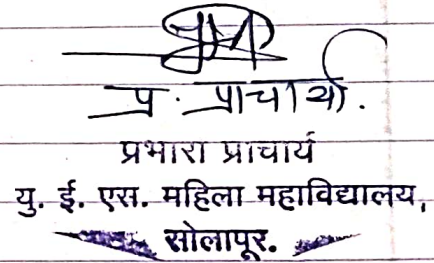 प्र. प्राचार्य.
प्रभारा प्राचार्य
यु. ई. एस. महिला महाविद्यालय,
सोलापूर.